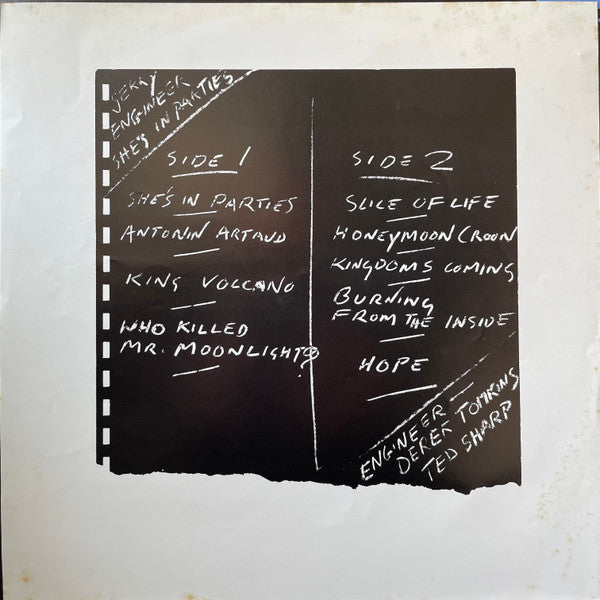 JERRY
ENGINEER
SHE'S IN PARTIES
SIDE 1
SHE'S IN PARTIES
ANTONIN ARTAUD
KING VOLCANO
WHO KILLED
MR. MOONLIGHT?
SIDE 2
SLICE OF LIFE
HONEYMOON CROON
KINGDOMS COMING
BURNING
FROM THE INSIDE
HOPE
ENGINEER —
DEREK TOMKINS
TED SHARP